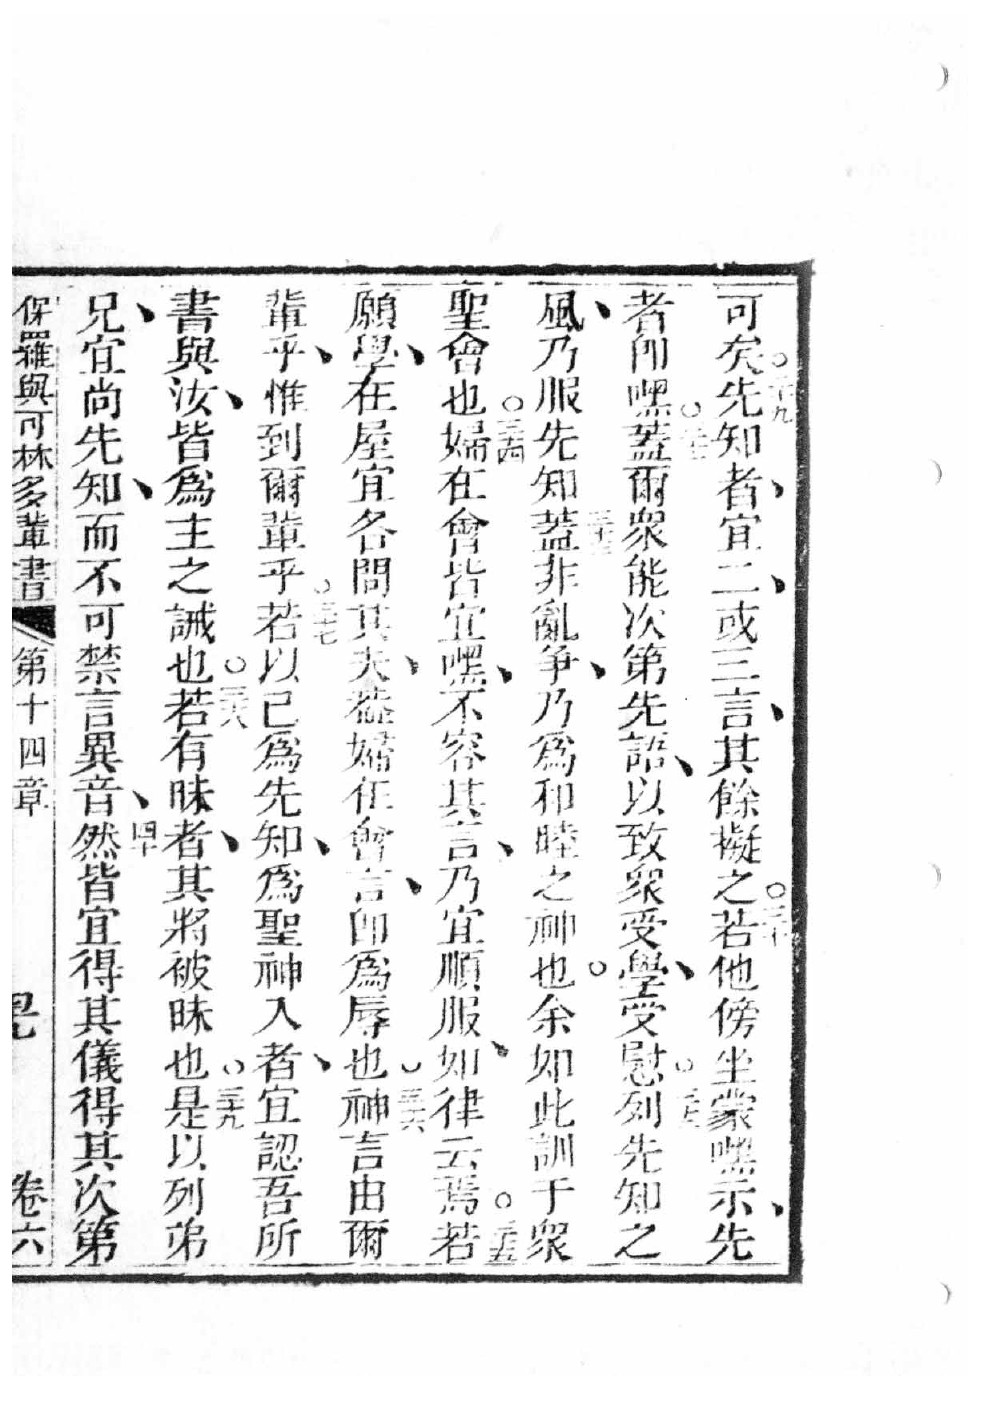 可矣先知者宜二或三言其餘擬之若他傍坐蒙嘿示先
二十九
三十
者卽嘿蓋爾衆能次第先語以致衆受學受慰列先知之
三十一
三十二
風乃服先知蓋非亂爭乃爲和睦之神也余如此訓于衆
三十三
聖會也婦在會皆宜嘿不容其言乃宜順服如律云焉若
三十四
三十五
願學在屋宜各問其夫蓋婦在會言卽爲辱也神言由爾
三十六
輩乎惟到爾輩乎若以己爲先知爲聖神入者宜認吾所
三十七
書與汝皆爲主之誡也若有昧者其將被昧也是以列弟
三十八
三十九
兄宜尚先知而不可禁言異音然皆宜得其儀得其次第
四十
保羅與可林多輩書 第十四章 卷六